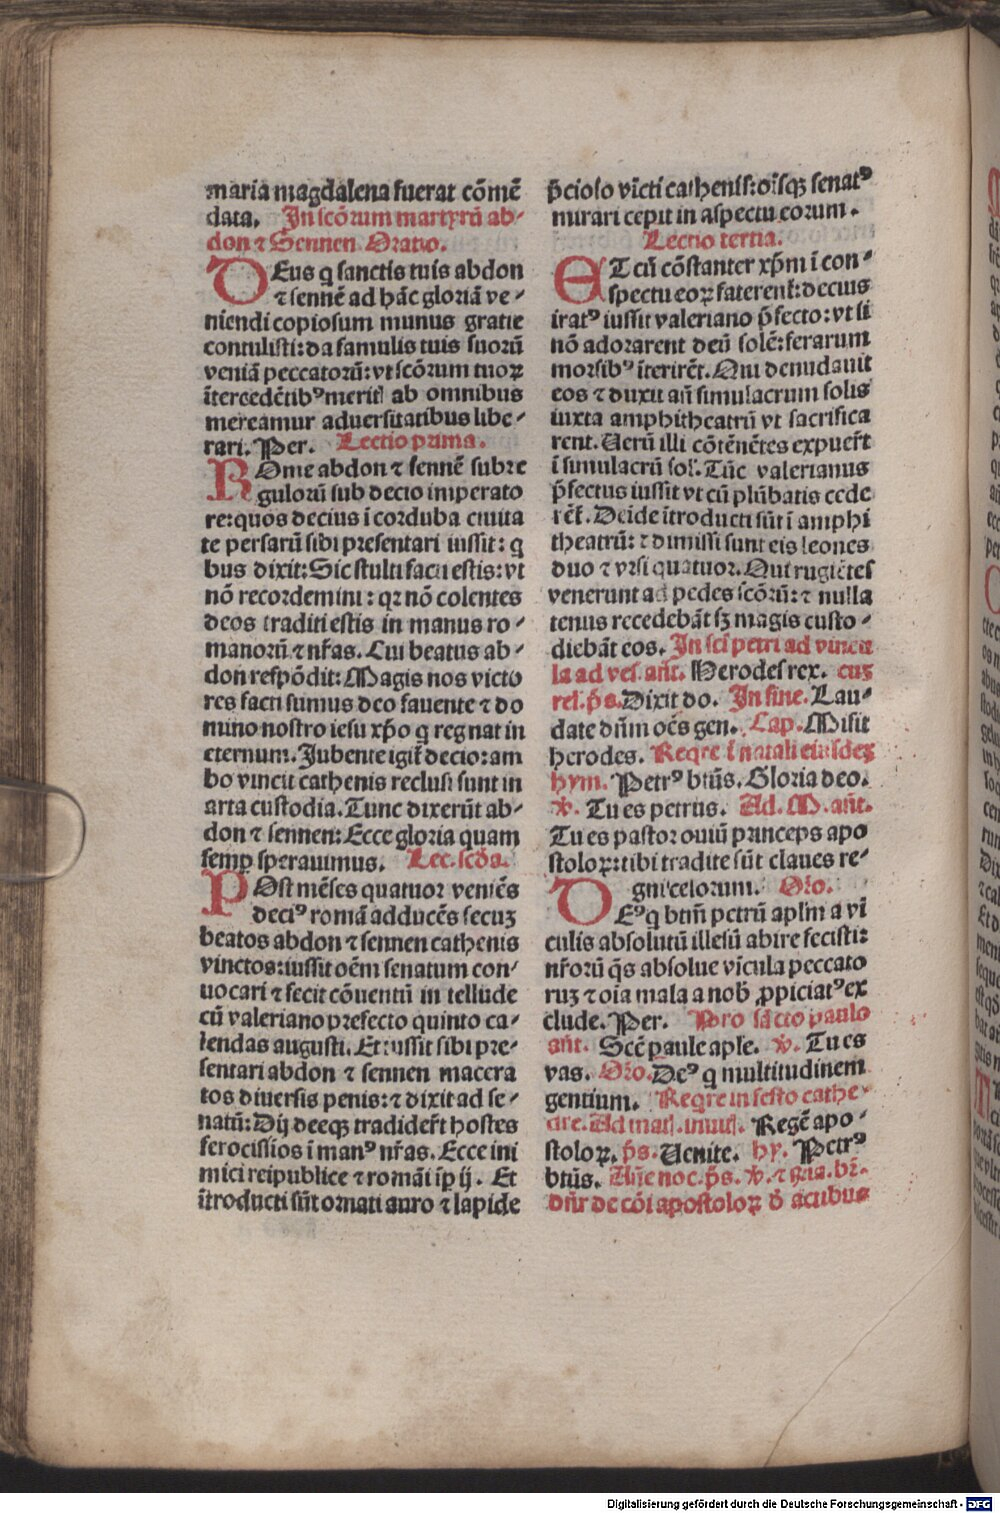 maria magdalena fuerat cōmē
data. In scōrum martyrū ab⸗
don ⁊ Sennen Oratio.
DEus q sanctis tuis abdon
⁊ sennē ad hāc gloriā ve⸗
niendi copiosum munus gratie
contulisti: da famulis tuis suorū
veniā peccatorū: vt scōrum tuoꝝ
ītercedētibꝰ merit͛ ab omnibus
mereamur aduersitatibus libe⸗
rari. Per. Lectio prima.
ROme abdon ⁊ sennē subre
gulorū sub decio imperato
re: quos decius ī corduba ciuita
te persarū sibi presentari iussit: q
bus dixit: Sic stulti facti estis: vt
nō recordemini: qꝛ nō colentes
deos traditi estis in manus ro⸗
manorū ⁊ nr̄as. Cui beatus ab⸗
don respōdit: Magis nos victo
res facti sumus deo fauente ⁊ do
mino nostro iesu xp̄o q regnat in
eternum. Jubente igit͛ decio: am
bo vincti cathenis reclusi sunt in
arta custodia. Tunc dixerūt ab⸗
don ⁊ sennen: Ecce gloria quam
semꝑ sperauimus. Lec. scd̄a.
POst mēses quatuor veniēs
deciꝰ romā adducēs secuꝫ
beatos abdon ⁊ sennen cathenis
vinctos: iussit oēm senatum con⸗
uocari ⁊ fecit cōuentū in tellude
cū valeriano prefecto quinto ca⸗
lendas augusti. Et iussit sibi pre⸗
sentari abdon ⁊ sennen macera
tos diuersis penis: ⁊ dixit ad se⸗
natū: Dij deeqꝫ tradider̄t hostes
ferocissios ī manꝰ nr̄as. Ecce ini
mici reipublice ⁊ romāi īpij. Et
ītroducti sūt ornati auro ⁊ lapide
p̄cioso vīcti cathenis: oīsqꝫ senatꝰ
mirari cepit in aspectu eorum.
Lectio tertia.
ET cū cōstanter xp̄m ī con⸗
spectu eoꝝ faterent͛: decius
iratꝰ iussit valeriano p̄fecto: vt si
nō adorarent deū solē: ferarum
morsibꝰ īterirēt. Qui denudauit
eos ⁊ duxit aū simulacrum solis
iuxta amphitheatrū vt sacrifica
rent. Uerū illi cōtēnētes expuer̄t
ī simulacrū sol͛. Tūc valerianus
p̄fectus iussit vt cū plūbatis cede
rēt͛. Deīde ītroducti sūt ī amphi
theatrū: ⁊ dimissi sunt eis leones
duo ⁊ vrsi quatuor. Qui rugiētes
venerunt ad pedes scōrū: ⁊ nulla
tenus recedebāt sꝫ magis custo⸗
diebāt eos. In sci͛ petri ad vincu
la ad ves. an̄t. Herodes rex. cuꝫ
rel. p̄s. Dixit do. In fine. Lau⸗
date dn̄m oēs gen. Cap. Misit
herodes. Reqre ī natali eiusdeꝫ
hym. Petrꝰ btūs. Gloria deo.
℣. Tu es petrus. Ad. M. an̄t.
Tu es pastor ouiū princeps apo
stoloꝝ: tibi tradite sūt claues re⸗
gni celorum. Or̄o.
DEꝰ q btm̄ petrū apl̄m a vī
culis absolutū illesū abire fecisti:
nr̄orū q̄s absolue vīcula peccato
ruꝫ ⁊ oīa mala a nob̄ ꝓpiciatꝰ ex
clude. Per. Pro sācto paulo
an̄t. Scē paule aple. ℣. Tu es
vas. Or̄o. Deꝰ q multitudinem
gentium. Reqre in festo cathe⸗
dre. Ad mat͛. inuit͛. Regē apo⸗
stoloꝝ. p̄s. Uenite. hy. Petrꝰ
btūs. p̄s. ℣.
dn̄r de cōi apostoloꝝ ō actibus
Digitalisierung gefördert durch die Deutsche Forschungsgemeinschaft - DFG